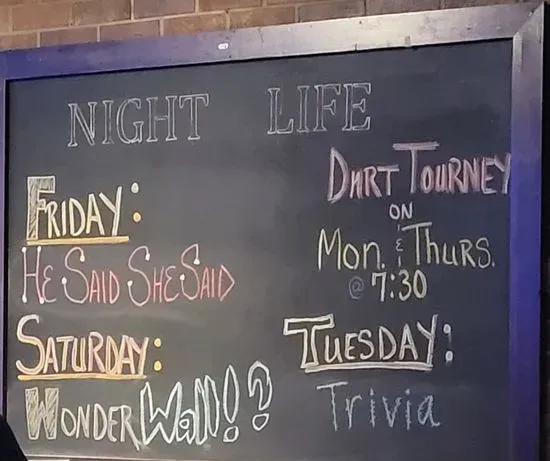 NIGHT LIFE
FRIDAY:
HE SAID SHE SAID
SATURDAY:
WONDER Wall!?
DART TOURNEY
ON
MON. & THURS.
@ 7:30
TUESDAY:
Trivia